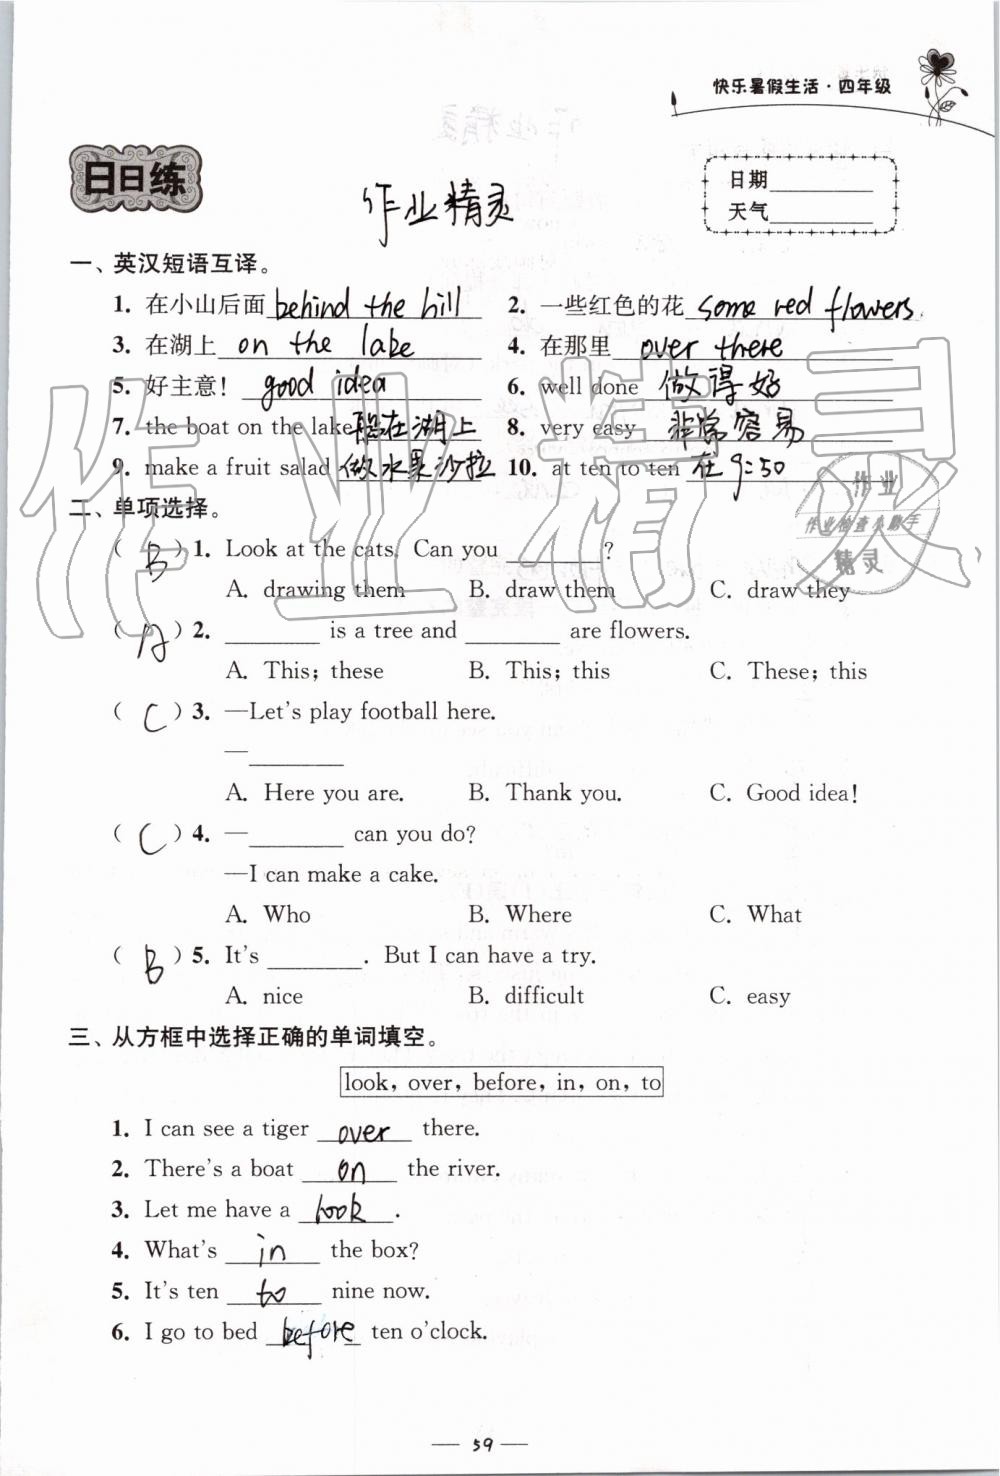 快乐暑假生活·四年级
日日练
作业精灵
日期
天气
一、英汉短语互译。
1. 在小山后面 behind the hill 2. 一些红色的花 some red flowers
3. 在湖上 on the lake 4. 在那里 over there
5. 好主意! good idea 6. well done 做得好
7. the boat on the lake 船在湖上 8. very easy 非常容易
9. make a fruit salad 做水果沙拉 10. at ten to ten 在9:50
二、单项选择。
( B )1. Look at the cats. Can you ________?
A. drawing them B. draw them C. draw they
( A )2. ________ is a tree and ________ are flowers.
A. This; these B. This; this C. These; this
( C )3. —Let's play football here.
—________
A. Here you are. B. Thank you. C. Good idea!
( C )4. —________ can you do?
—I can make a cake.
A. Who B. Where C. What
( B )5. It's ________. But I can have a try.
A. nice B. difficult C. easy
三、从方框中选择正确的单词填空。
look, over, before, in, on, to
1. I can see a tiger over there.
2. There's a boat on the river.
3. Let me have a look.
4. What's in the box?
5. It's ten to nine now.
6. I go to bed before ten o'clock.
— 59 —
作业精灵
作业
作业检查小助手
精灵